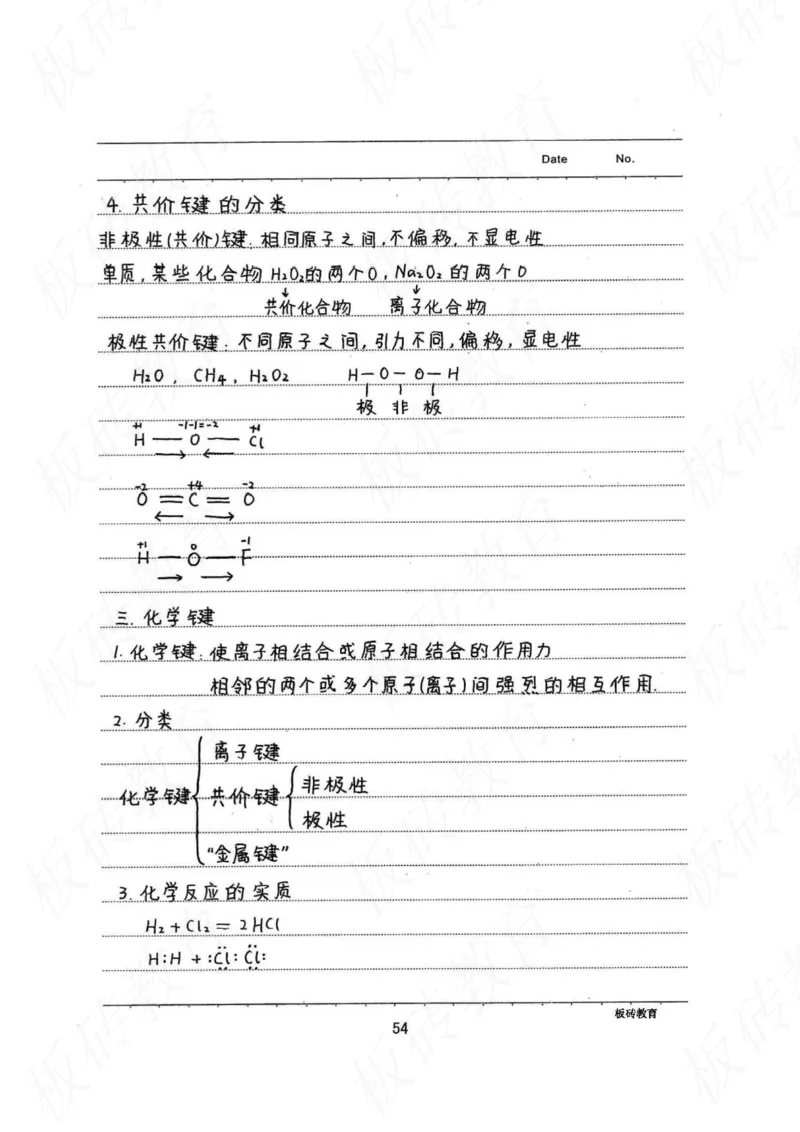 Date No.
4. 共价键的分类
非极性(共价)键: 相同原子之间,不偏移, 不显电性
单质, 某些化合物 H₂O₂的两个O, Na₂O₂ 的两个O
↓ ↓
共价化合物 离子化合物
极性共价键: 不同原子之间, 引力不同, 偏移, 显电性
H₂O, CH₄, H₂O₂ H—O—O—H
极 非 极
+1 -1-1=-2 +1
H — O — Cl
→ ←
-2 +4 -2
O = C = O
← →
+1 0 -1
H — O — F
→ →
三. 化学键
1. 化学键: 使离子相结合或原子相结合的作用力
相邻的两个或多个原子(离子)间强烈的相互作用.
2. 分类
离子键
化学键 共价键 非极性
极性
“金属键”
3. 化学反应的实质
H₂ + Cl₂ = 2HCl
H:H + :Cl: Cl:
板砖教育
54